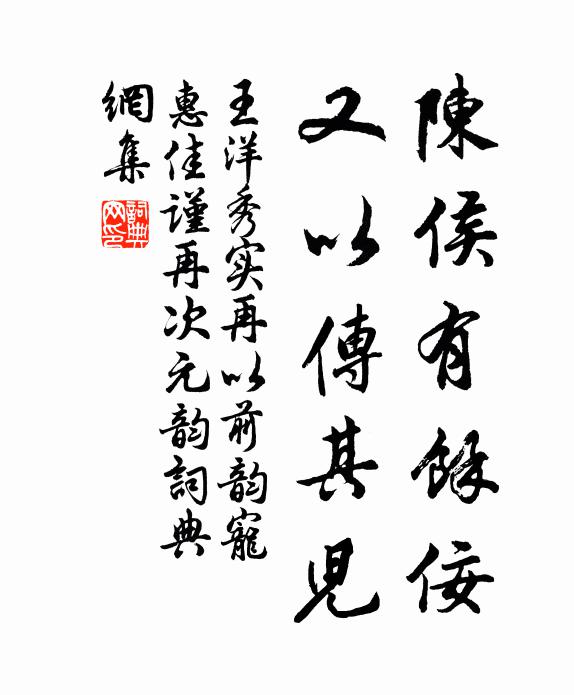 陳侯有餘佞
又以傳其児
王洋秀实再以前韵寵
惠佳謹再次元韵詞典
網集
詞典网印